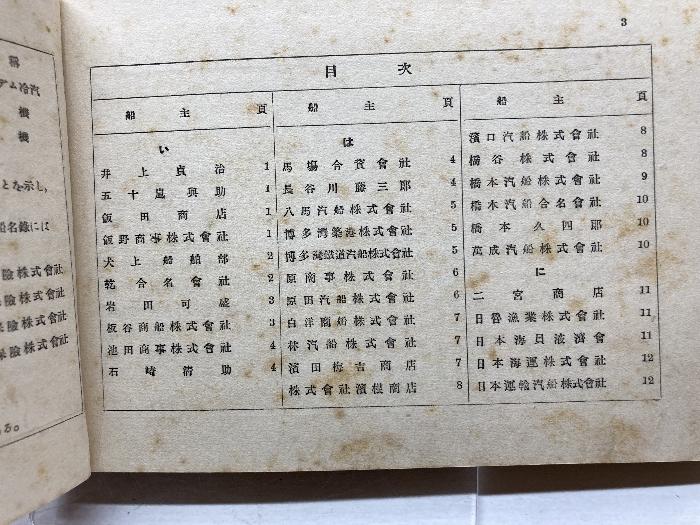 稱
デム冷汽
機
機
とを示し、
船名錄には
險株式會社
險株式會社
險株式會社
險株式會社
る。
3
目次
船主 頁
い
井上貞治 1
五十嵐興助 1
飯田商店 1
飯野商事株式會社 1
犬上船舶部 2
乾合名會社 2
岩田可盛 3
板谷商船株式會社 3
池田商事株式會社 4
石崎淸助 4
船主 頁
は
馬場合資會社 4
長谷川藤三郞 4
八馬汽船株式會社 5
博多灣築港株式會社 5
博多灣鐵道汽船株式會社 5
原商事株式會社 6
原田汽船株式會社 6
白洋商船株式會社 7
林汽船株式會社 7
濱田梅吉商店 7
株式會社濱根商店 8
船主 頁
濱口汽船株式會社 8
橋谷株式會社 8
橋本汽船株式會社 9
橋本汽船合名會社 10
橋本久四郞 10
萬成汽船株式會社 10
に
二宮商店 11
日魯漁業株式會社 11
日本海員掖濟會 11
日本海運株式會社 12
日本運輸汽船株式會社 12